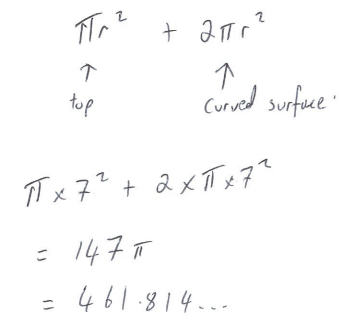 πr² + 2πr²
↑ ↑
top curved surface.
π × 7² + 2 × π × 7²
= 147π
= 461.814...